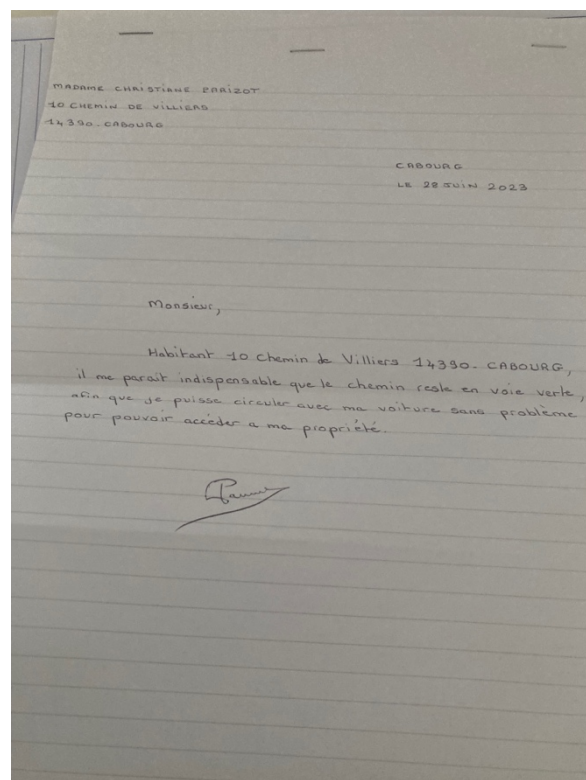 MADAME CHRISTIANE PARIZOT
10 CHEMIN DE VILLIERS
14390. CABOURG
CABOURG
LE 28 JUIN 2023
Monsieur,
Habitant 10 Chemin de Villiers 14390. CABOURG,
il me parait indispensable que le chemin reste en voie verte,
afin que je puisse circuler avec ma voiture sans problème
pour pouvoir accéder a ma propriété.